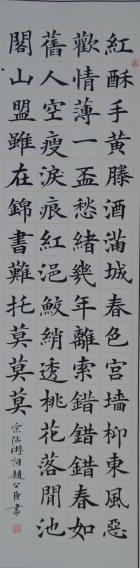 紅酥手黃滕酒滿城春色宮墻柳東風惡
歡情薄一盃愁緒幾年離索錯錯錯春如
舊人空瘦淚痕紅浥鮫綃透桃花落閒池
閣山盟雖在錦書難托莫莫莫
宗陸游詞趙公臣書